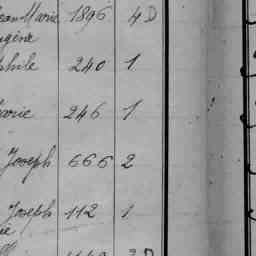 Jean Marie 1896 4 D
Eugène
phile 240 1
Marie 246 1
Joseph 666 2
Joseph 112 1